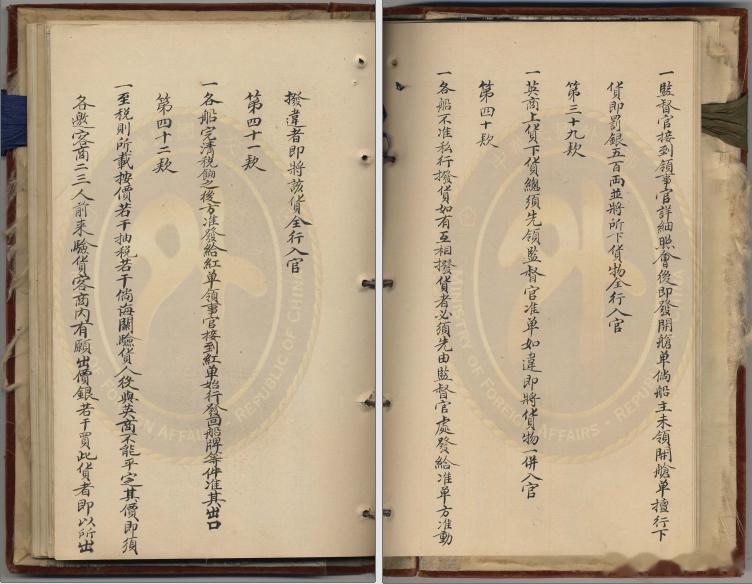 一監督官接到領事官詳細照會後即發開艙单倘船主未領開艙单擅行下
貨即罰銀五百両並將所下貨物全行入官
第三十九款
一英商上貨下貨總須先領監督官准单如違即將貨物一併入官
第四十款
一各船不准私行撥貨如有互相撥貨者必須先由監督官處發給准单方准動
撥違者即將該貨全行入官
第四十一款
一各船完清税餉之後方准發給紅单領事官接到紅单始行發回船牌等件准其出口
第四十二款
一至税則所載按價若干抽税若干倘海關驗貨人役與英商不能平定其價即須
各邀客商二三人前来驗貨客商內有願出價銀若干買此貨者即以所出
MINISTRY OF FOREIGN AFFAIRS · REPUBLIC OF CHINA
OF FOREIGN AFFAIRS · REPUBLIC OF CHIN